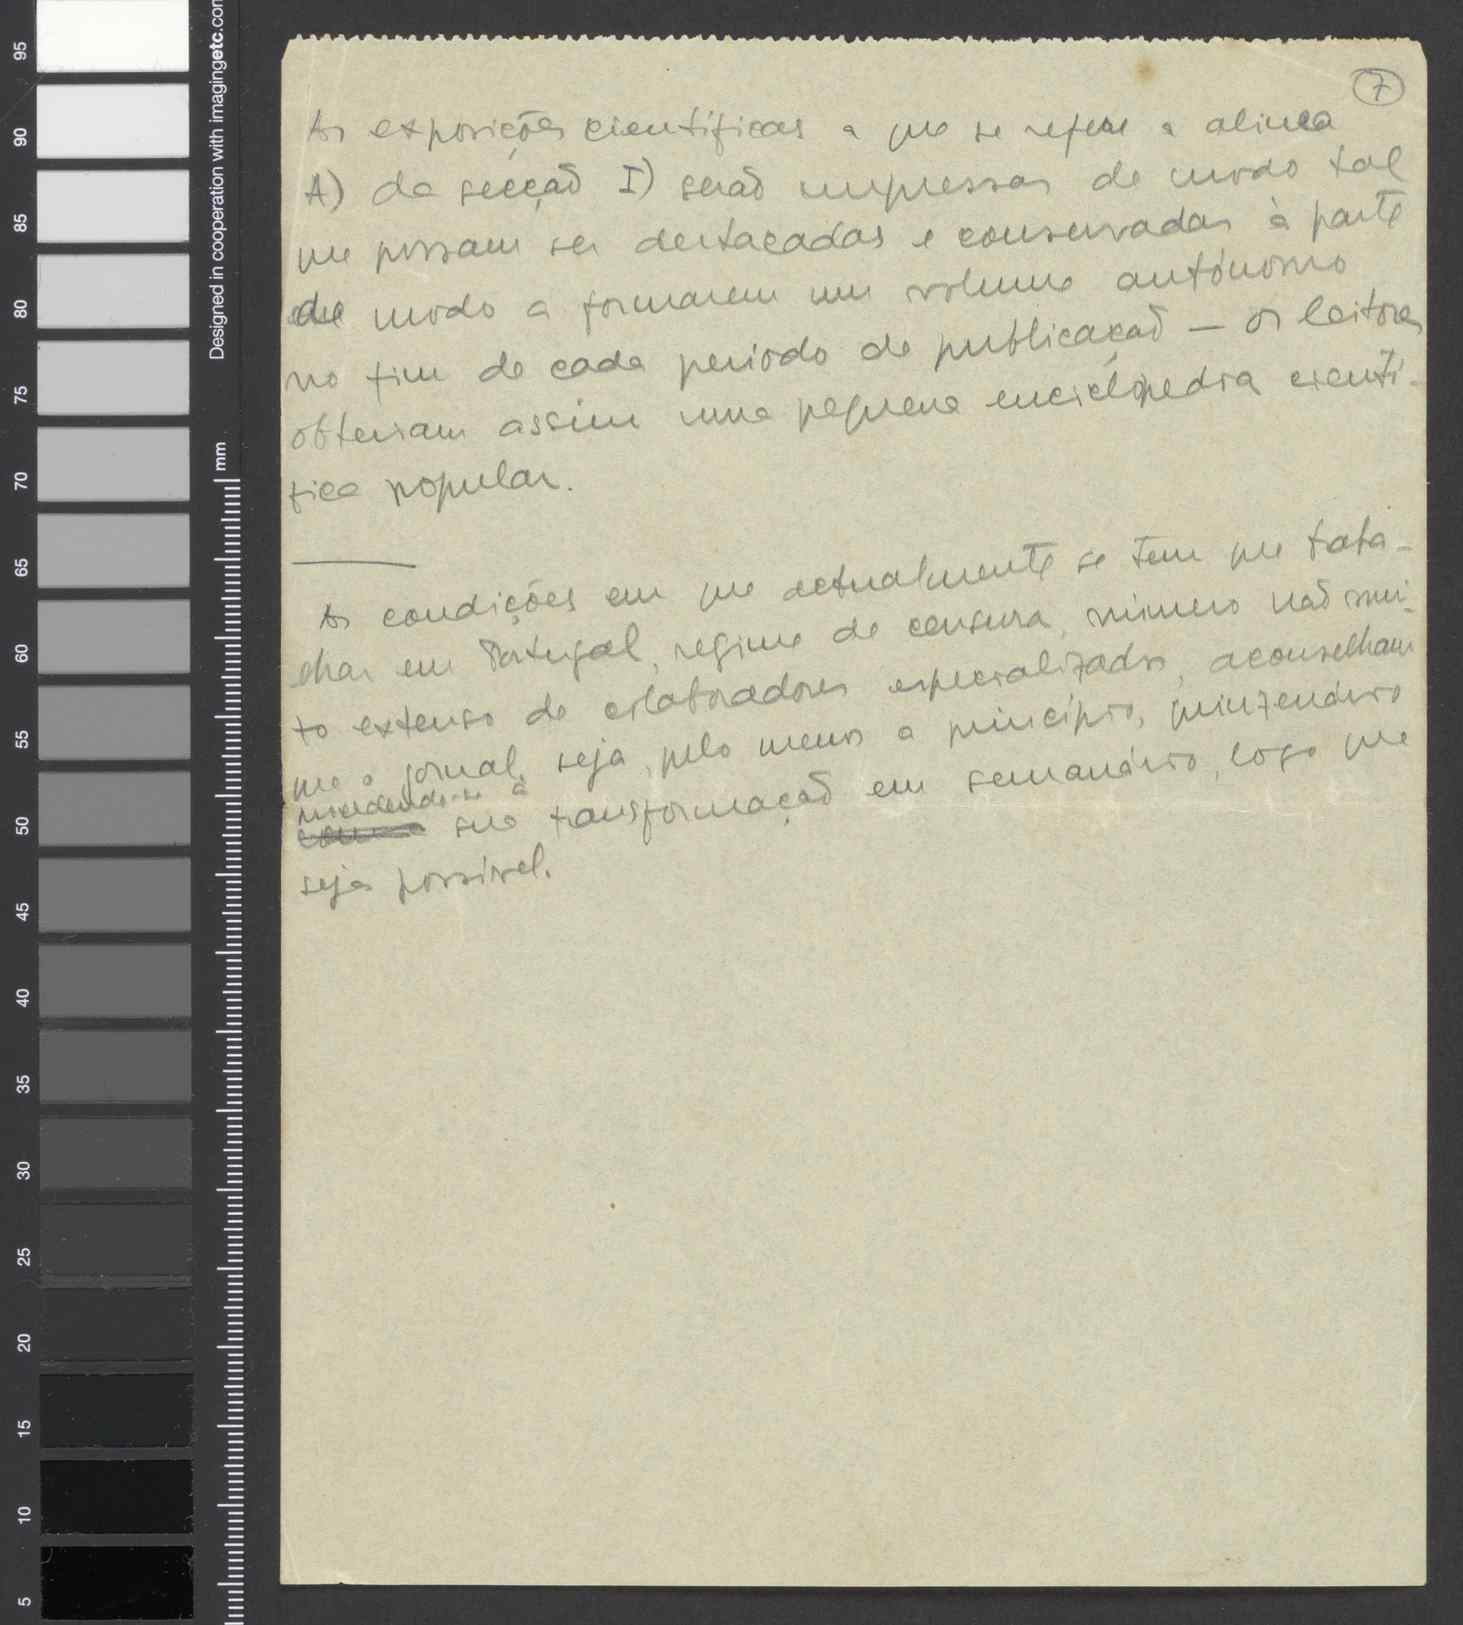 95
90
85
80
75
70
65
60
55
50
45
40
35
30
25
20
15
10
5
Designed in cooperation with imagingetc.com
mm
7
As exposições cientificas a que se refere a alinea
A) da secção I) serão impressas de modo tal
que possam ser destacadas e conservadas à parte
de modo a formarem um volume autónomo
no fim de cada periodo de publicação — os leitores
obteriam assim uma pequena enciclópedia cientí-
fica popular.
As condições em que actualmente se tem que traba-
lhar em Portugal, regime de censura, número não mui-
to extenso de colaboradores especializados, aconselham
que o jornal seja, pelo menos a princípio, quinzenário
procedendo-se à
sua transformação em semanário, logo que
seja possível.